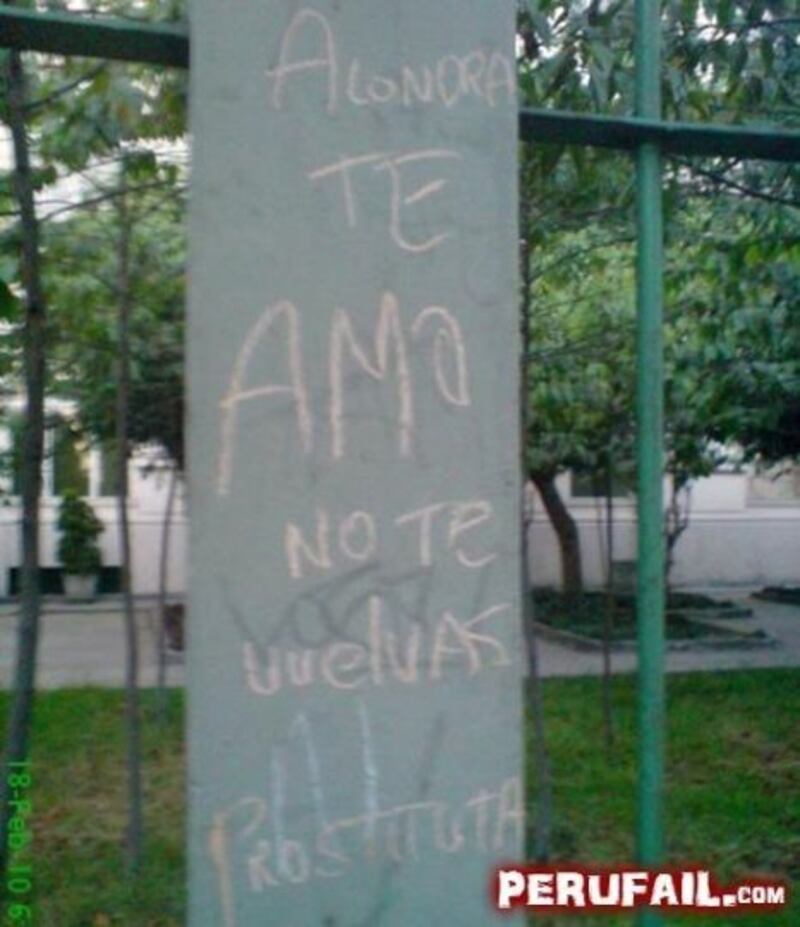 ALONDRA
TE
AMO
NO TE
VUELVAS
PROSTITUTA
PERUFAIL.COM